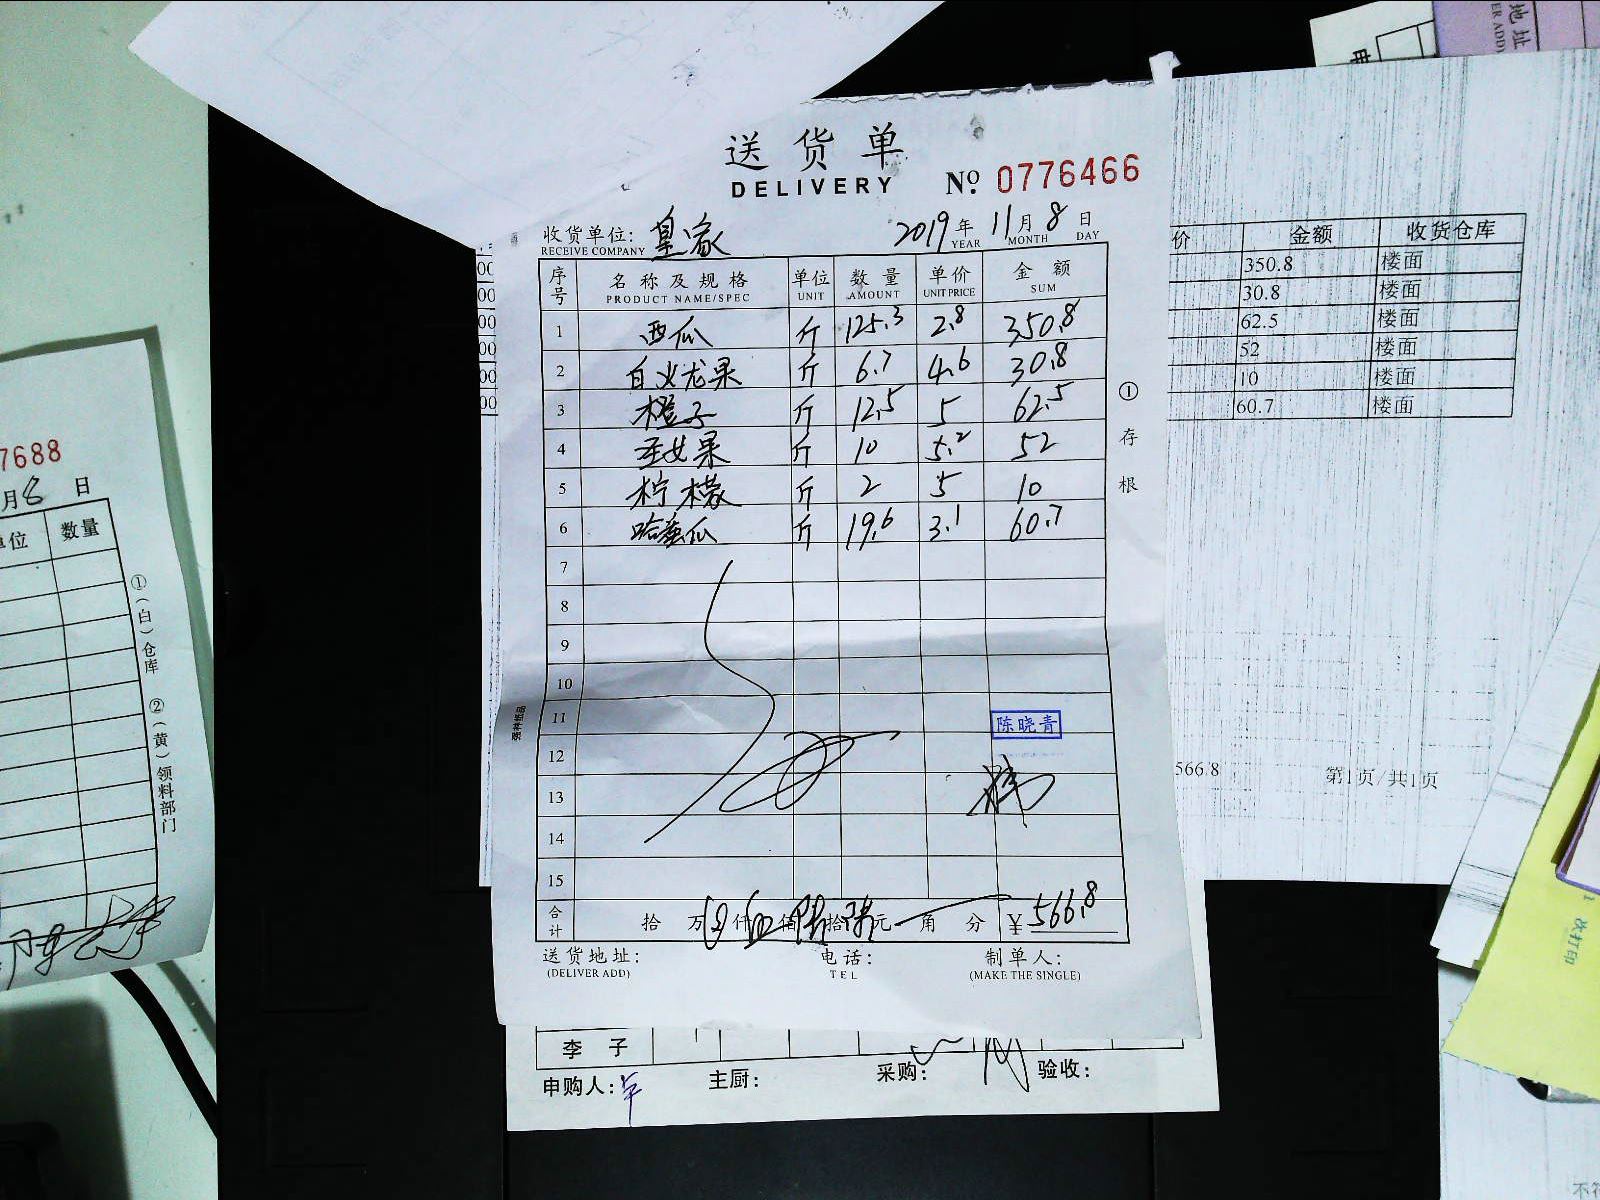 送货单
DELIVERY No. 0776466
收货单位: 皇家 2019年 11月 8日
RECEIVE COMPANY YEAR MONTH DAY
序号 名称及规格 单位 数量 单价 金额
PRODUCT NAME/SPEC UNIT AMOUNT UNIT PRICE SUM
1 西瓜 斤 125.3 2.8 350.8
2 白火龙果 斤 6.7 4.6 30.8
3 橙子 斤 12.5 5 62.5
4 圣女果 斤 10 5.2 52
5 柠檬 斤 2 5 10
6 哈蜜瓜 斤 19.6 3.1 60.7
7
8
9
10
11 陈晓青
12
13
14
15
合计 拾 万 仟 佰 拾 元 角 分 ¥566.8
送货地址: 电话: 制单人:
(DELIVER ADD) TEL (MAKE THE SINGLE)
①存根
李子
申购人: 主厨: 采购: 验收:
价 金额 收货仓库
350.8 楼面
30.8 楼面
62.5 楼面
52 楼面
10 楼面
60.7 楼面
566.8 第1页/共1页
00
00
00
00
00
00
7688
月8日
单位 数量
①(白)仓库 ②(黄)领料部门
地址
ER ADD)
申
次打印